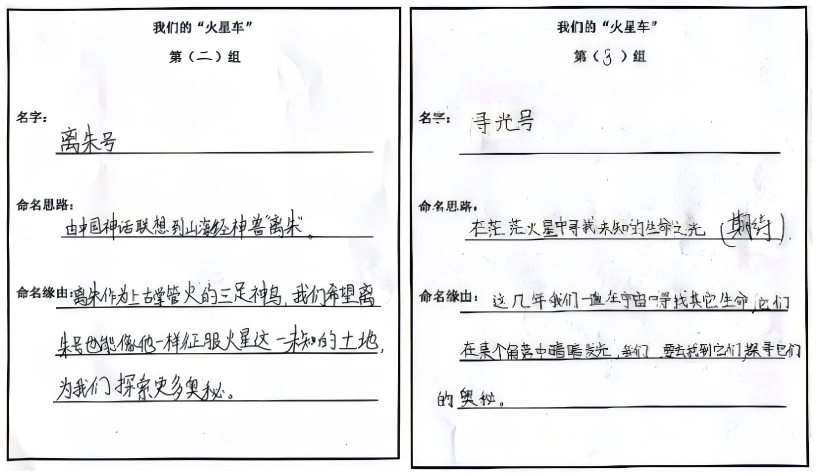 我们的“火星车”
第（二）组
名字：
离朱号
命名思路：
由中国神话联想到山海经神兽“离朱”。
命名缘由：离朱作为上古掌管火的三足神鸟，我们希望离
朱号也能像他一样征服火星这一未知的土地，
为我们探索更多奥秘。
我们的“火星车”
第（3）组
名字：
寻光号
命名思路：
在茫茫火星中寻找未知的生命之光（期待）.
命名缘由：这几年我们一直在宇宙中寻找其它生命，它们
在某个角落中暗暗发光，我们要去找到它们，探寻它们
的奥秘。